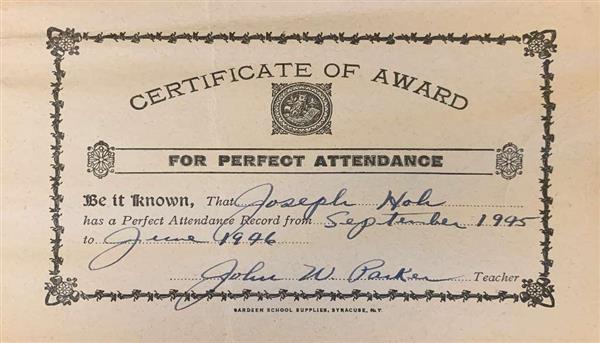 CERTIFICATE OF AWARD
FOR PERFECT ATTENDANCE
Be it Known, That Joseph Hoh
has a Perfect Attendance Record from September 1945
to June 1946
John W Parker Teacher
BARDEEN SCHOOL SUPPLIES, SYRACUSE, N.Y.